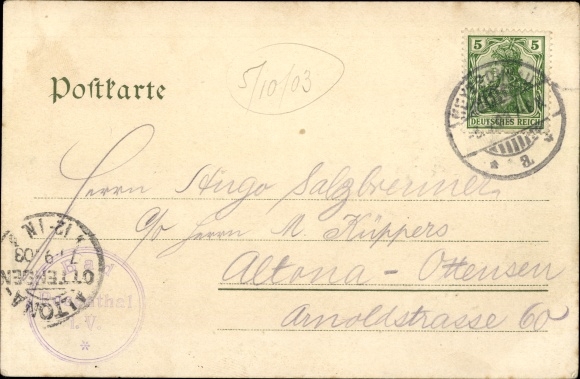 Postkarte
5/10/03
5 5
DEUTSCHES REICH
a.
Herrn Hugo Salzbrenner
c/o Herrn M. Küppers
Altona-Ottensen
Arnoldstrasse 60
ALTONA-
OTTENSEN
7. 9. 03
12-1N
I. V.